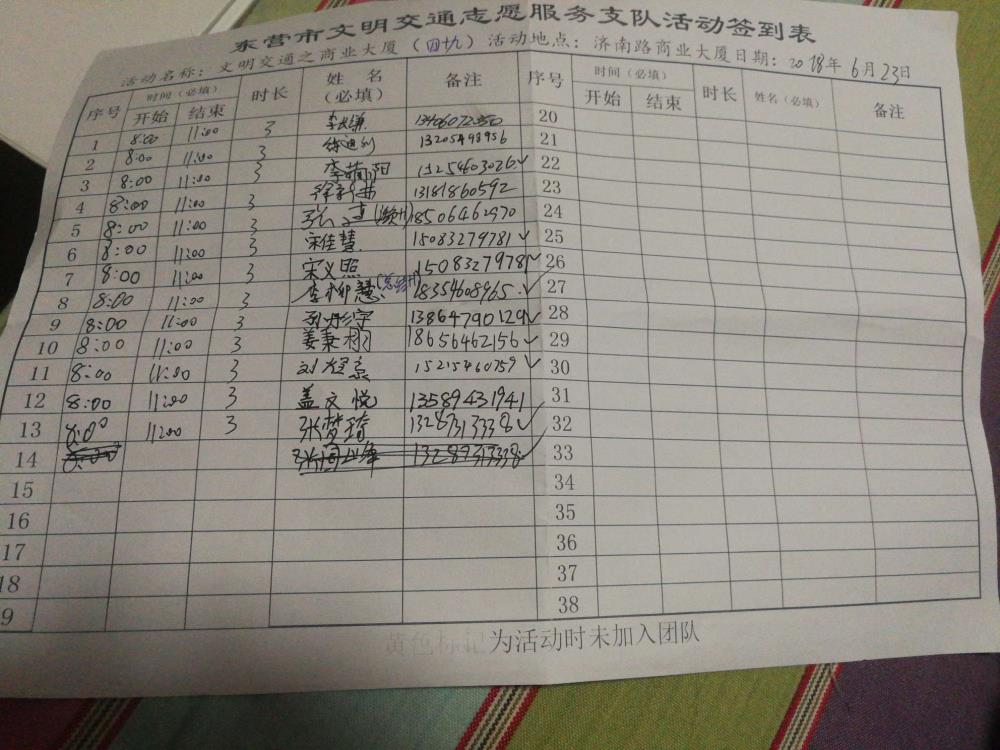 东营市文明交通志愿服务支队活动签到表
活动名称：文明交通之商业大厦（四十九）活动地点：济南路商业大厦日期：2018年6月23日
序号 时间（必填） 时长 姓 名（必填） 备注 序号 时间（必填） 时长 姓名（必填） 备注
开始 结束 开始 结束
1 8:00 11:00 3 20
2 8:00 11:00 3 徐迪 13205498956 21
3 8:00 11:00 3 李萌阳 15254603026 ✓ 22
4 8:00 11:00 3 徐新茹 13181860592 23
5 8:00 11:00 3 18506462970 24
6 8:00 11:00 3 宋佳慧 15083279781 ✓ 25
7 8:00 11:00 3 宋义照 15083279781 ✓ 26
8 8:00 11:00 3 李柳慧 18354608965 ✓ 27
9 8:00 11:00 3 孙彤宇 13864790129 ✓ 28
10 8:00 11:00 3 姜秉桐 18656462156 ✓ 29
11 8:00 11:00 3 15215460759 ✓ 30
12 8:00 11:00 3 盖文悦 13589431941 31
13 8:00 11:00 3 张梦琦 13287313338 ✓ 32
14 8:00 13287313338 33
15 34
16 35
17 36
18 37
9 38
黄色标记为活动时未加入团队